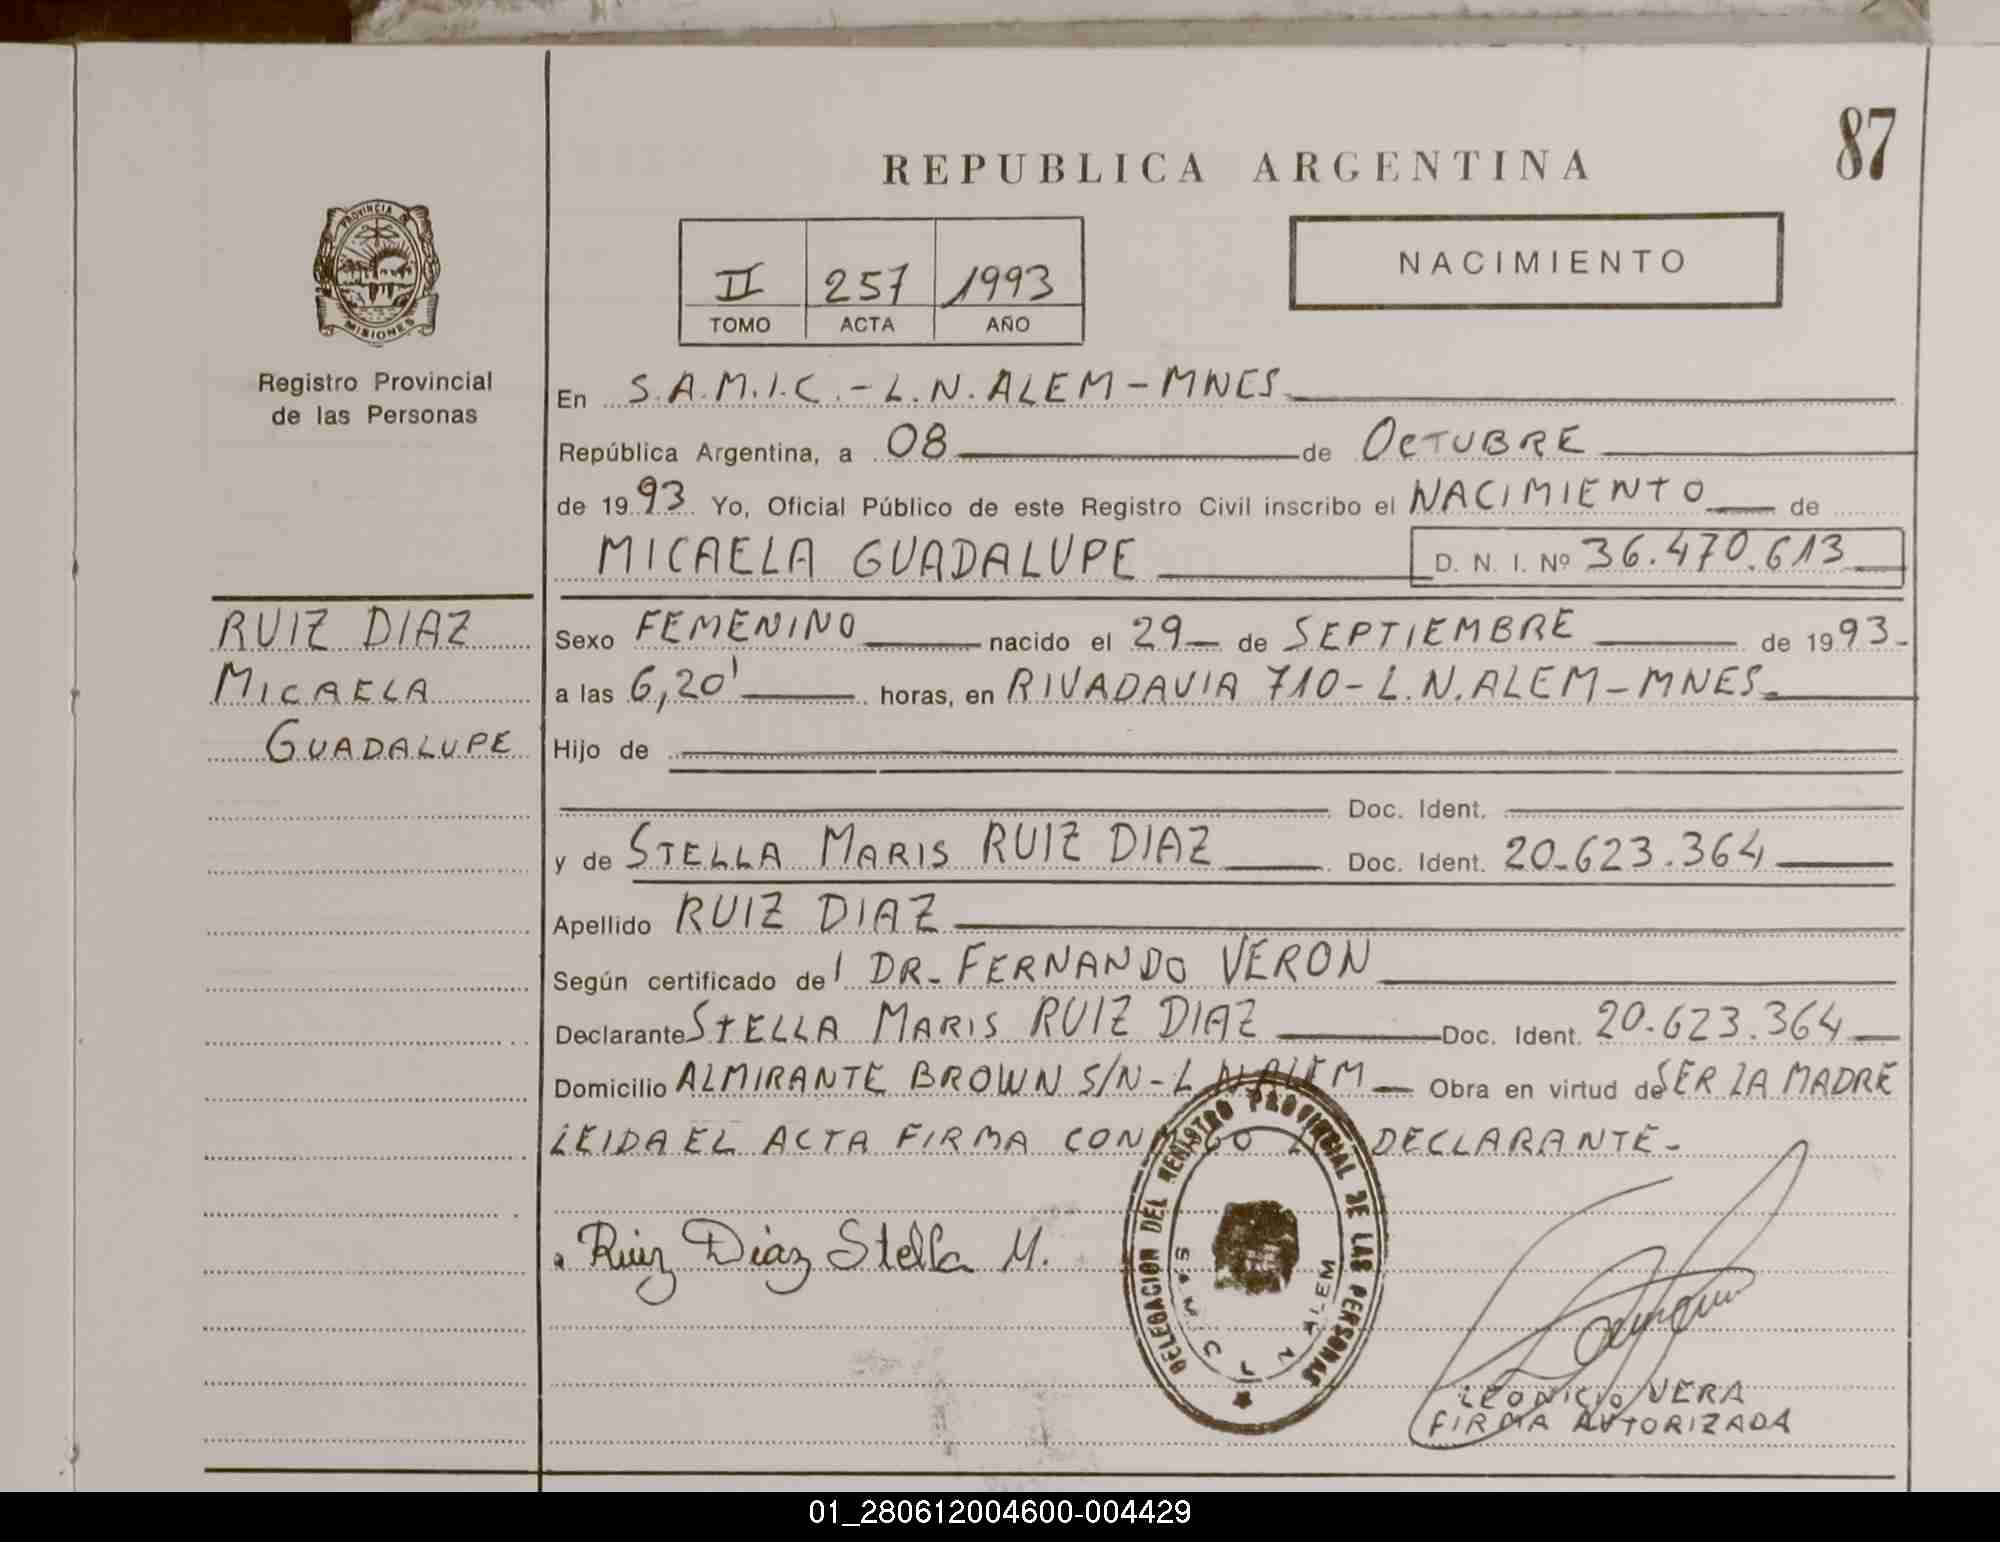 87
REPUBLICA ARGENTINA
PROVINCIA DE
MISIONES
Registro Provincial
de las Personas
II 257 1993
TOMO ACTA AÑO
NACIMIENTO
En S.A.M.I.C.-L.N.ALEM-MNES
República Argentina, a 08 de OCTUBRE
de 1993 Yo, Oficial Público de este Registro Civil inscribo el NACIMIENTO de
MICAELA GUADALUPE D. N. I. Nº 36.470.613
RUIZ DIAZ
MICAELA
GUADALUPE
Sexo FEMENINO nacido el 29 de SEPTIEMBRE de 1993
a las 6,20' horas, en RIVADAVIA 710-L.N.ALEM-MNES
Hijo de
Doc. Ident.
y de STELLA MARIS RUIZ DIAZ Doc. Ident. 20.623.364
Apellido RUIZ DIAZ
Según certificado del DR. FERNANDO VERON
Declarante STELLA MARIS RUIZ DIAZ Doc. Ident. 20.623.364
Domicilio ALMIRANTE BROWN S/N-L N ALEM Obra en virtud de SER LA MADRE
LEIDA EL ACTA FIRMA CONMIGO LA DECLARANTE-
Ruiz Diaz Stella M.
DELEGACION DEL REGISTRO PROVINCIAL DE LAS PERSONAS
SAMIC L N ALEM
LEONICIO VERA
FIRMA AUTORIZADA
01_280612004600-004429